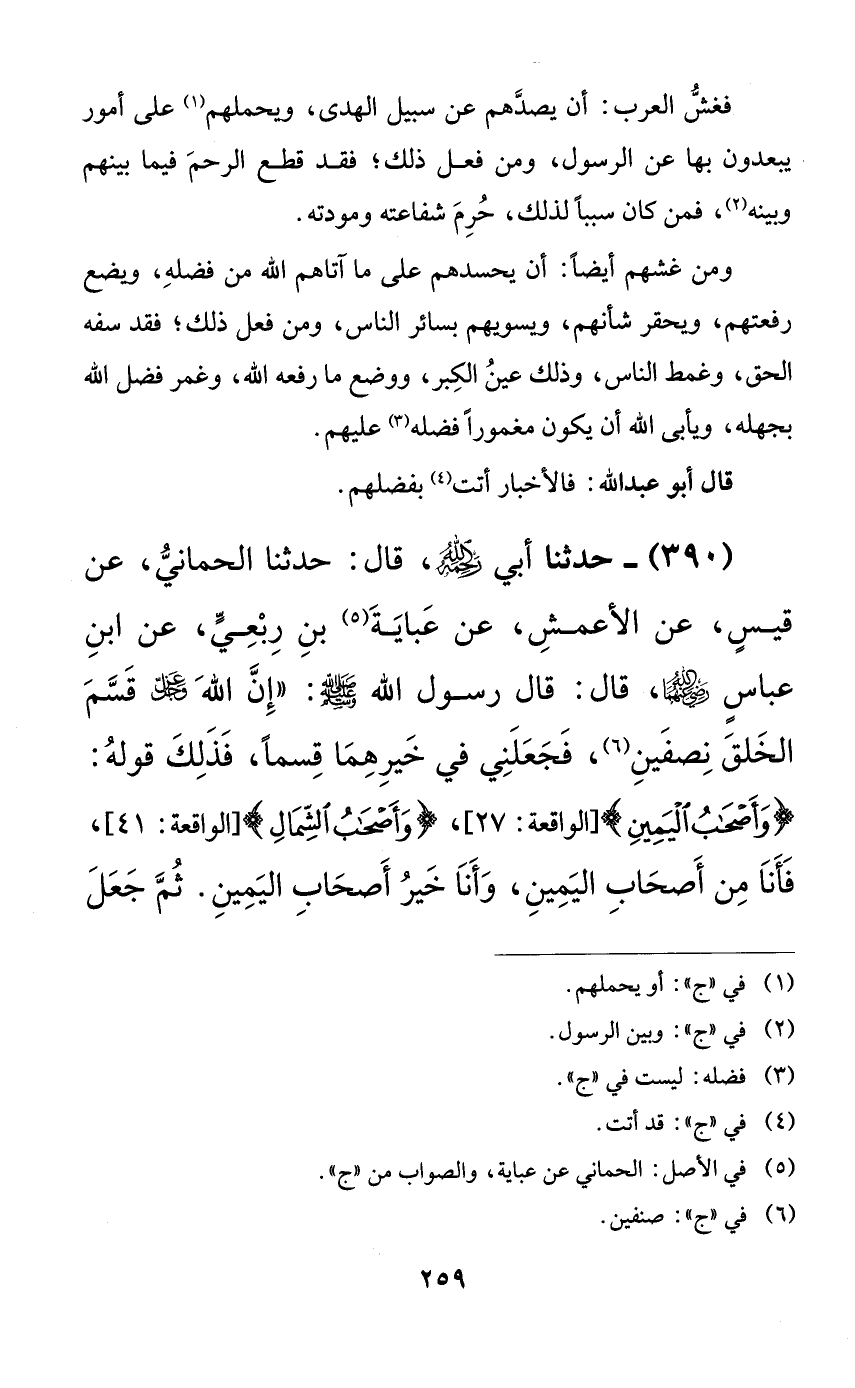 فغشُّ العرب: أن يصدَّهم عن سبيل الهدى، ويحملهم(١) على أمور
يبعدون بها عن الرسول، ومن فعل ذلك؛ فقد قطع الرحمَ فيما بينهم
وبينه(٢)، فمن كان سبباً لذلك، حُرِمَ شفاعته ومودته.
ومن غشهم أيضاً: أن يحسدهم على ما آتاهم الله من فضلهِ، ويضع
رفعتهم، ويحقر شأنهم، ويسويهم بسائر الناس، ومن فعل ذلك؛ فقد سفه
الحق، وغمط الناس، وذلك عينُ الكِبر، ووضع ما رفعه الله، وغمر فضل الله
بجهله، ويأبى الله أن يكون مغموراً فضله(٣) عليهم.
قال أبو عبدالله: فالأخبار أتت(٤) بفضلهم.
(٣٩٠) ـ حدثنا أبي رحمه الله، قال: حدثنا الحمانيُّ، عن
قيسٍ، عن الأعمشِ، عن عَبايَةَ(٥) بنِ رِبْعِيٍّ، عن ابنِ
عباسٍ رضي الله عنهما، قال: قال رسول الله ﷺ: «إِنَّ اللهَ عز وجل قَسَّمَ
الخَلقَ نِصفَينِ(٦)، فَجَعَلَنِي في خَيرِهِمَا قِسماً، فَذَلِكَ قولهُ:
﴿وَأَصْحَٰبُ ٱلْيَمِينِ﴾ [الواقعة: ٢٧]، ﴿وَأَصْحَٰبُ ٱلشِّمَالِ﴾ [الواقعة: ٤١]،
فَأَنَا مِن أَصحَابِ اليَمِينِ، وَأَنَا خَيرُ أَصحَابِ اليَمِينِ. ثُمَّ جَعَلَ
(١) في «ج»: أو يحملهم.
(٢) في «ج»: وبين الرسول.
(٣) فضله: ليست في «ج».
(٤) في «ج»: قد أتت.
(٥) في الأصل: الحماني عن عباية، والصواب من «ج».
(٦) في «ج»: صنفين.
٢٥٩